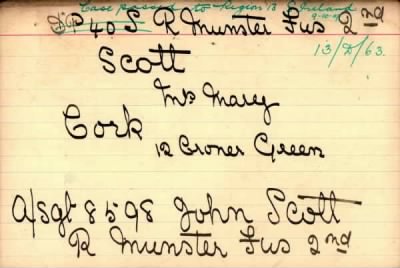 Case passed to Region 13 S. Ireland
P 40 S R Munster Fus 2nd
13/D/63.
Scott
Mrs Mary
Cork
12 Croner Green
A/Sgt 8598 John Scott
R Munster Fus 2nd